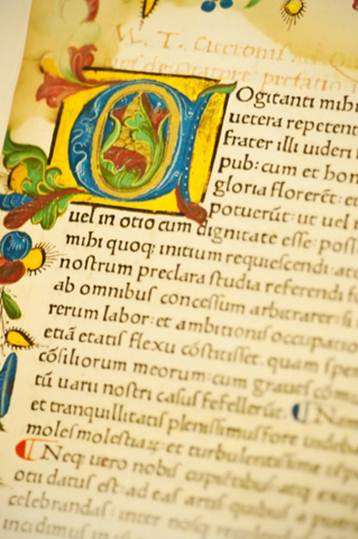 W. T. Ciceronis
Ogitanti mihi
uetera repeten
frater illi uideri
pub: cum et hon
gloria florerēt: et
potuerūt: ut uel i
uel in otio cum dignitate esse poss
mihi quoq; initium requiescendi: at
nostrum preclara studia referendi f
ab omnibus concessum arbitrarer: si
rerum labor: et ambitionis occupatio
etiā etatis flexu cōstitisset. quam spe
cōsiliorum meorum: cum graues cōm
tū uarii nostri casus fefellerūt. Nam
et tranquillitatis plenissimus fore uideba
moles molestiaꝝ: et turbulentissime
Neq uero nobis cupiētibus atq
otii datus est: ad eas artis quibus a pue
celebrandas: inter nosq
incidimus in